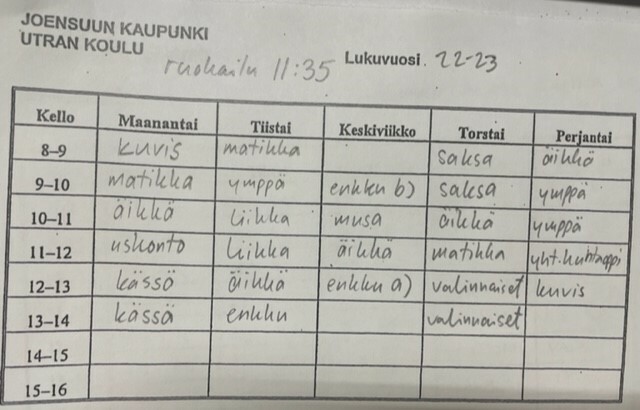 JOENSUUN KAUPUNKI
UTRAN KOULU
ruokailu 11:35 Lukuvuosi. 22-23
Kello Maanantai Tiistai Keskiviikko Torstai Perjantai
8–9 kuvis matikka saksa äikkä
9–10 matikka ymppä enkku b) saksa ymppä
10–11 äikkä liikka musa äikkä ymppä
11–12 uskonto liikka äikkä matikka
12–13 kässä äikkä enkku a) valinnaiset kuvis
13–14 kässä enkku valinnaiset
14–15
15–16